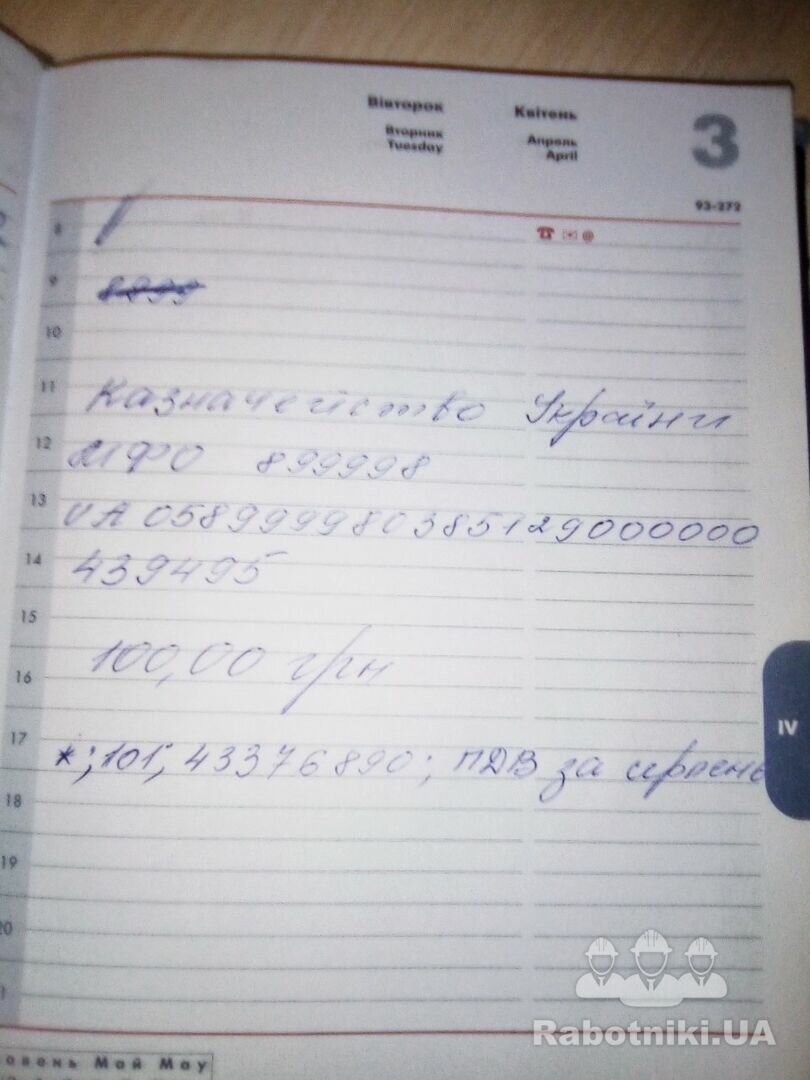 Вівторок Квітень 3
Вторник Апрель
Tuesday April
93-272
8
9 8999
10
11 Казначейство України
12 МФО 899998
13 UA 058999980385129000000
14 439495
15
16 100,00 грн
17 *;101;43376890; ПДВ за серпень
18
19
20
IV
Rabotniki.UA
Май May